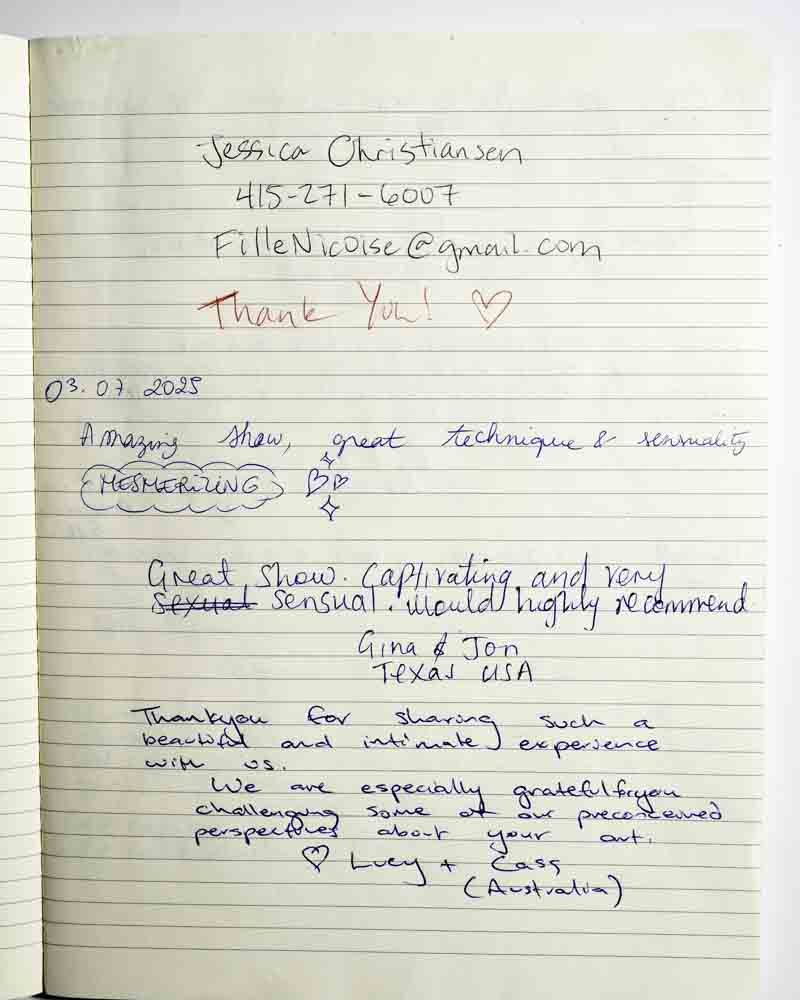 Jessica Christiansen
415-271-6007
FilleNicoise@gmail.com
Thank You! ♡
03.07.2025
Amazing show, great technique & sensuality
MESMERIZING
Great show. Captivating and very
sexual sensual. Would highly recommend
Gina & Jon
Texas USA
Thankyou for sharing such a
beautiful and intimate experience
with us.
We are especially grateful for you
challenging some of our preconceived
perspectives about your art.
♡ Lucy + Cass
(Australia)